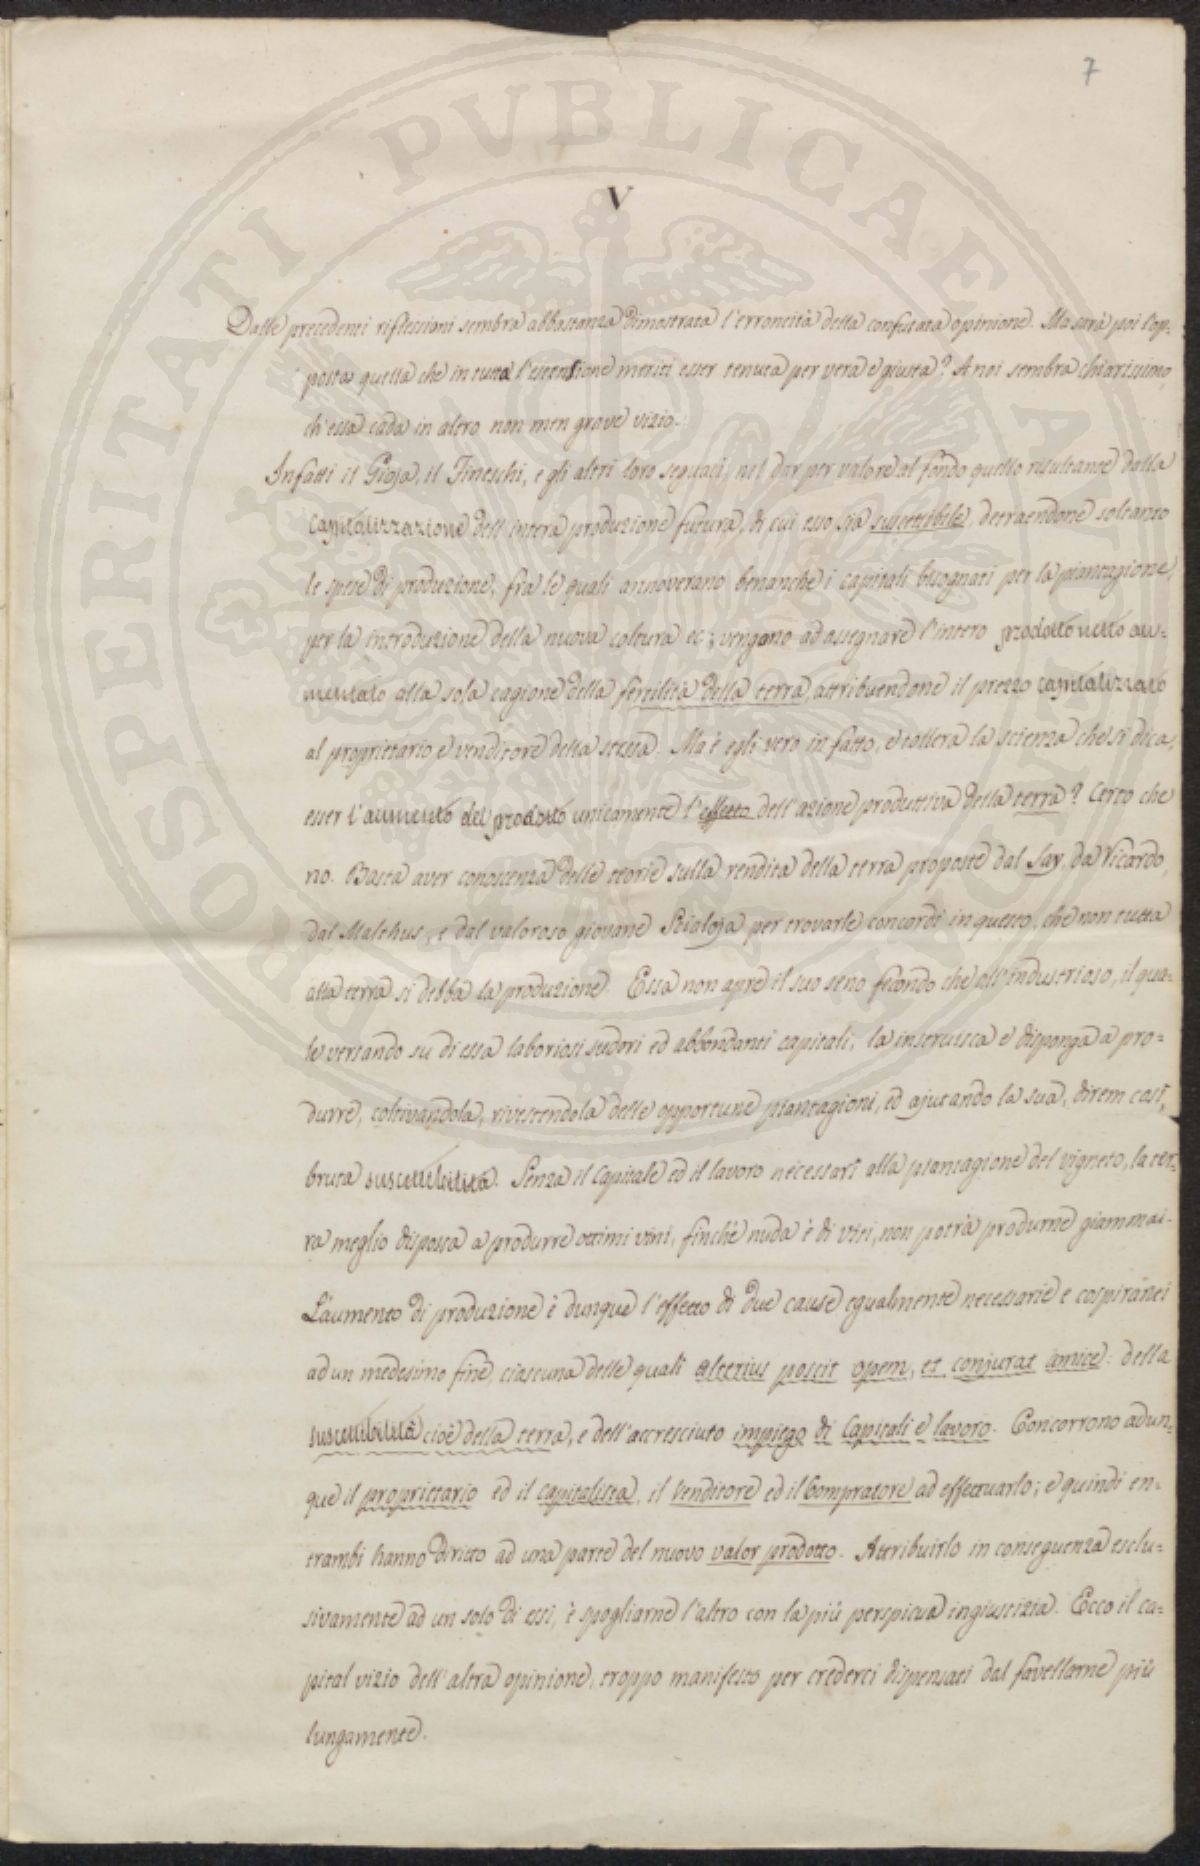 7
V
Dalle precedenti riflessioni sembra abbastanza dimostrata l'erroneità della confutata opinione. Ma sarà poi l'op-
posta quella che in tutta l'estensione meriti esser tenuta per vera e giusta? A noi sembra chiarissimo
ch'essa cada in altro non men grave vizio.
Infatti il Gioja, il Fineschi, e gli altri loro seguaci, nel dar per valore al fondo quello risultante dalla
capitalizzazione dell'intera produzione futura, di cui esso sia suscettibile, detraendone soltanto
le spese di produzione, fra le quali annoverano benanche i capitali bisognati per la piantagione,
per la introduzione della nuova coltura ec; vengono ad assegnare l'intero prodotto netto au=
mentato alla sola cagione della fertilità della terra, attribuendone il prezzo capitalizzato
al proprietario e venditore della stessa. Ma è egli vero in fatto, e tollera la scienza che si dica,
esser l'aumento del prodotto unicamente l'effetto dell'azione produttiva della terra? Certo che
no. Basta aver conoscenza delle teorie sulla rendita della terra proposte dal Say, da Ricardo,
dal Malthus, e dal valoroso giovane Scialoja per trovarle concordi in questo, che non tutta
alla terra si debba la produzione. Essa non apre il suo seno fecondo che all'industrioso, il qua-
le versando su di essa laboriosi sudori ed abbondanti capitali, la instruisca e disponga a pro=
durre, coltivandola, rivestendola delle opportune piantagioni, ed ajutando la sua, direm così,
bruta suscettibilità. Senza il Capitale ed il lavoro necessarî alla piantagione del vigneto, la ter-
ra meglio disposta a produrre ottimi vini, finchè nuda è di viti, non potrà produrne giammai.
L'aumento di produzione è dunque l'effetto di due cause egualmente necessarie e cospiranti
ad un medesimo fine, ciascuna delle quali alterius poscit opem, et conjurat amice: della
suscettibilità cioè della terra, e dell'accresciuto impiego di Capitali e lavoro. Concorrono adun-
que il proprietario ed il capitalista, il Venditore ed il Compratore ad effettuarlo; e quindi en-
trambi hanno diritto ad una parte del nuovo valor prodotto. Attribuirlo in conseguenza esclu=
sivamente ad un solo di essi, è spogliarne l'altro con la più perspicua ingiustizia. Ecco il ca-
pital vizio dell'altra opinione, troppo manifesto per crederci dispensati dal favellarne più
lungamente.
PROSPERITATI PUBLICAE